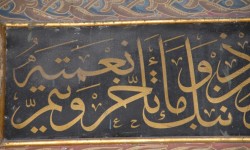 ذنبك وما تأخر ويتم نعمته